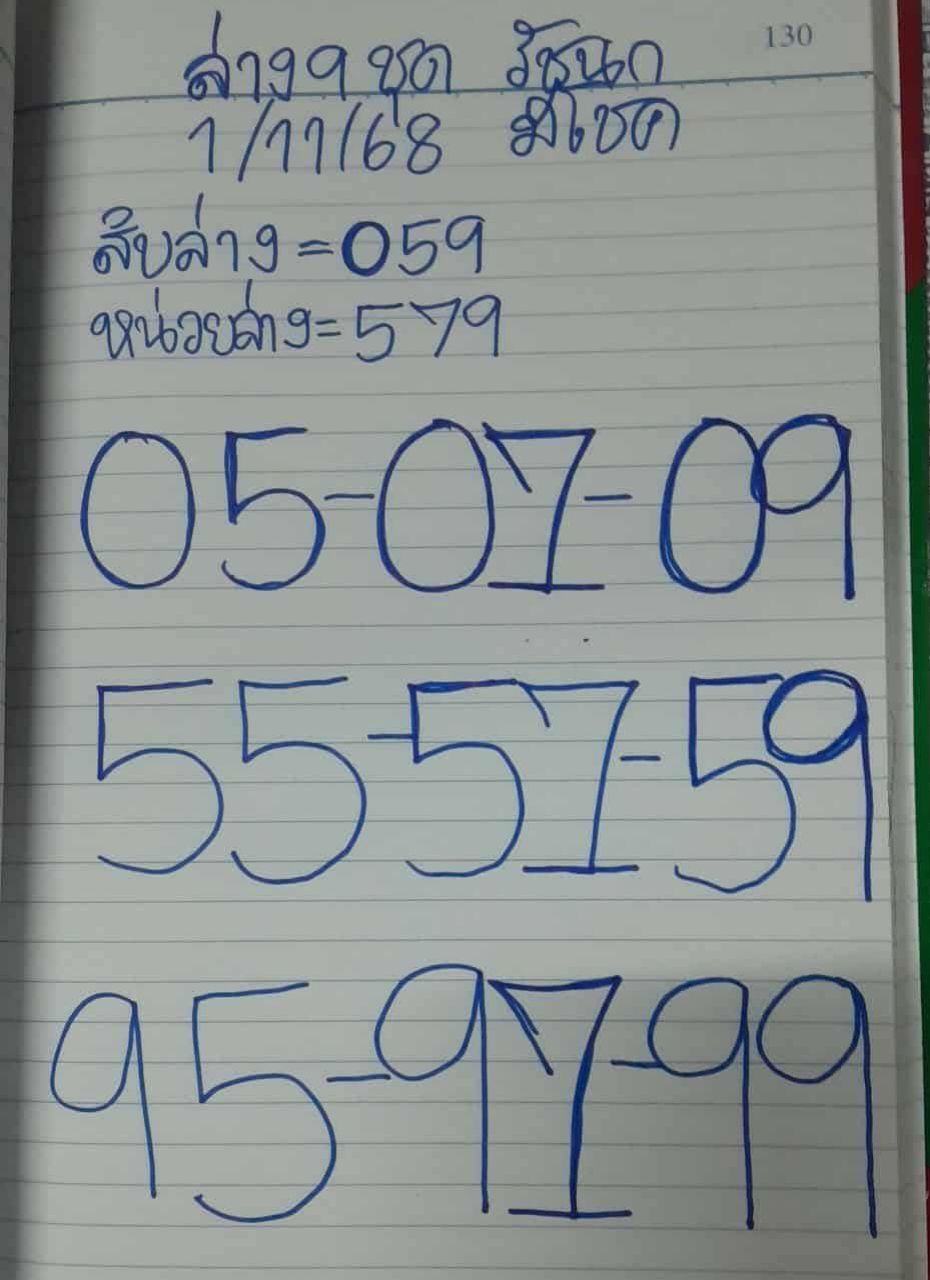 130
ล่าง 9 ชุด รัชนก
1/11/68 มีโชค
สิบล่าง = 059
หน่วยล่าง = 579
05-07-09
55-57-59
95-97-99